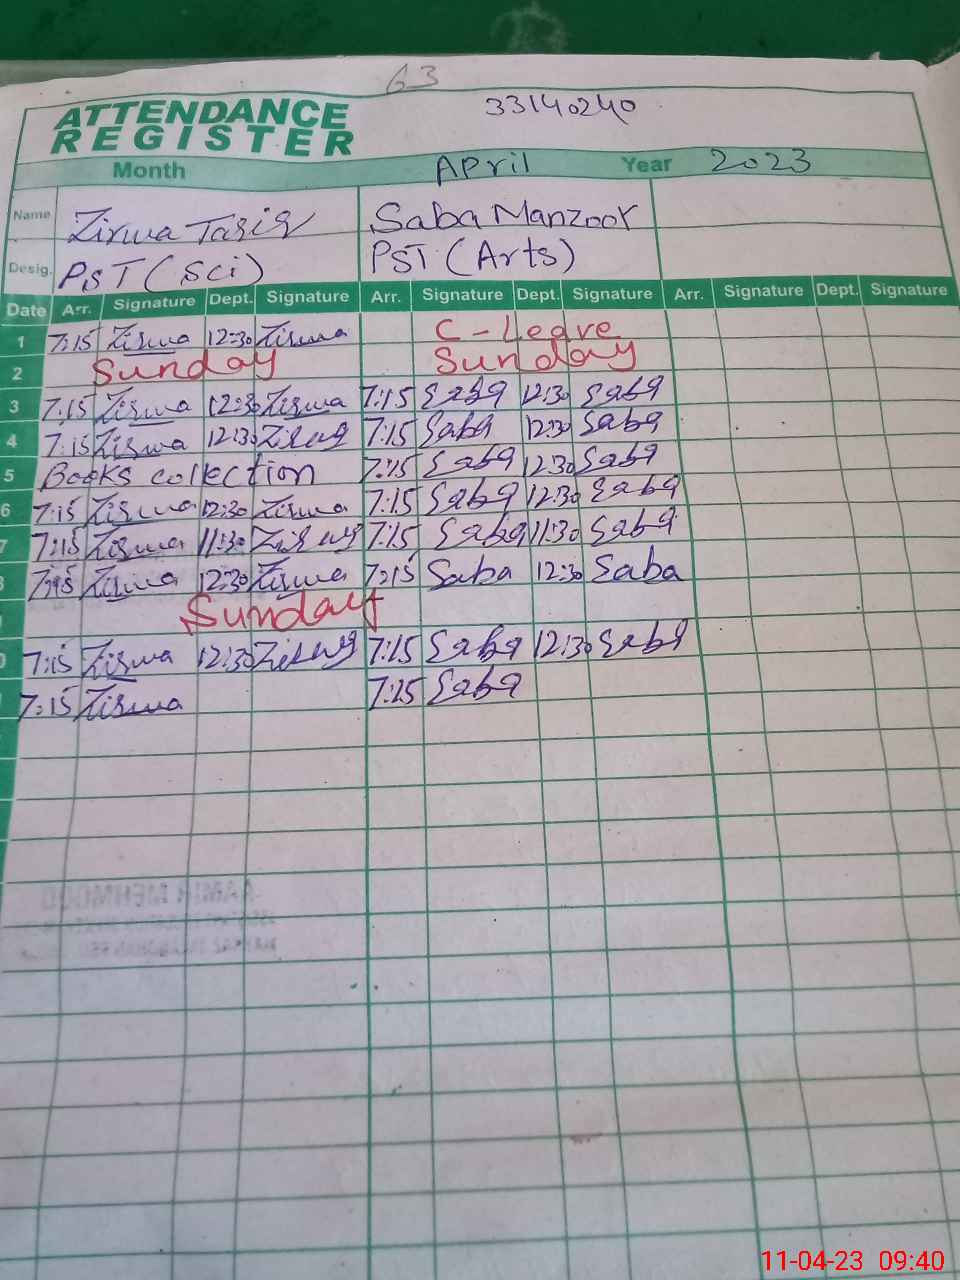 63
33140240
ATTENDANCE
REGISTER
Month April Year 2023
Name Zirwa Tariq Saba Manzoor
Desig. PST (Sci) PST (Arts)
Date Arr. Signature Dept. Signature Arr. Signature Dept. Signature Arr. Signature Dept. Signature
1 7:15 Zirwa 12:30 Zirwa C-Leave
2 Sunday Sunday
3 7:15 Zirwa 12:30 Zirwa 7:15 Saba 12:30 Saba
4 7:15 Zirwa 12:30 Zirwa 7:15 Saba 12:30 Saba
5 Books collection 7:15 Saba 12:30 Saba
6 7:15 Zirwa 12:30 Zirwa 7:15 Saba 12:30 Saba
7 7:15 Zirwa 11:30 Zirwa 7:15 Saba 11:30 Saba
8 7:15 Zirwa 12:30 Zirwa 7:15 Saba 12:30 Saba
Sunday
7:15 Zirwa 12:30 Zirwa 7:15 Saba 12:30 Saba
7:15 Zirwa 7:15 Saba
AAMIR MEHMOOD
11-04-23 09:40